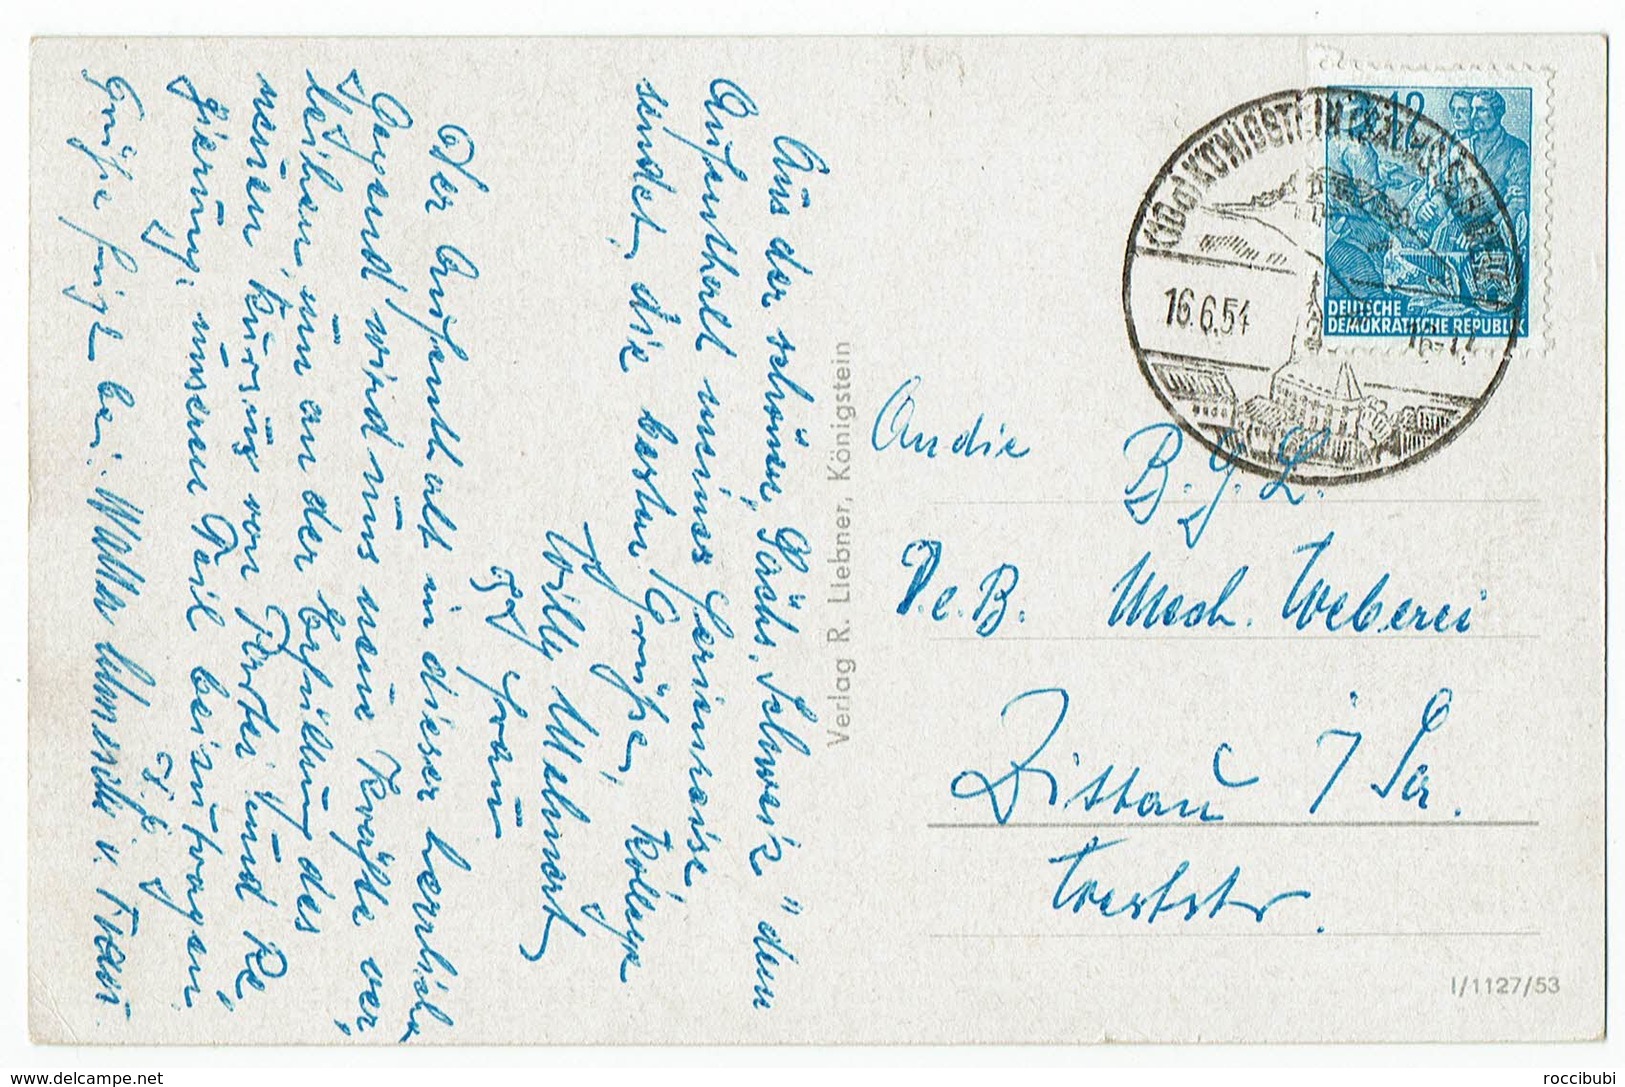 Aus der schönen „Sächs. Schweiz" dem
Aufenthalt meiner Ferienreise
sendet die besten Grüße, Kollege
Willy Mehnert
u. Frau
Der Aufenthalt in dieser herrlichen
Gegend wird uns neue Kräfte ver,
leihen, um an der Erfüllung des
neuen Kurses von Partei und Re,
gierung, unseren Teil beizutragen
D. O.
Grüße fügt bei: Walter u. Frau.
Verlag R. Liebner, Königstein
(10a) KÖNIGSTEIN (SÄCHS. SCHWEIZ)
16.6.54
16-17
12
DEUTSCHE
DEMOKRATISCHE REPUBLIK
An die B.G.L.
V.e.B. Mech. Weberei
Zittau i/Sa.
I/1127/53
www.delcampe.net
roccibubi